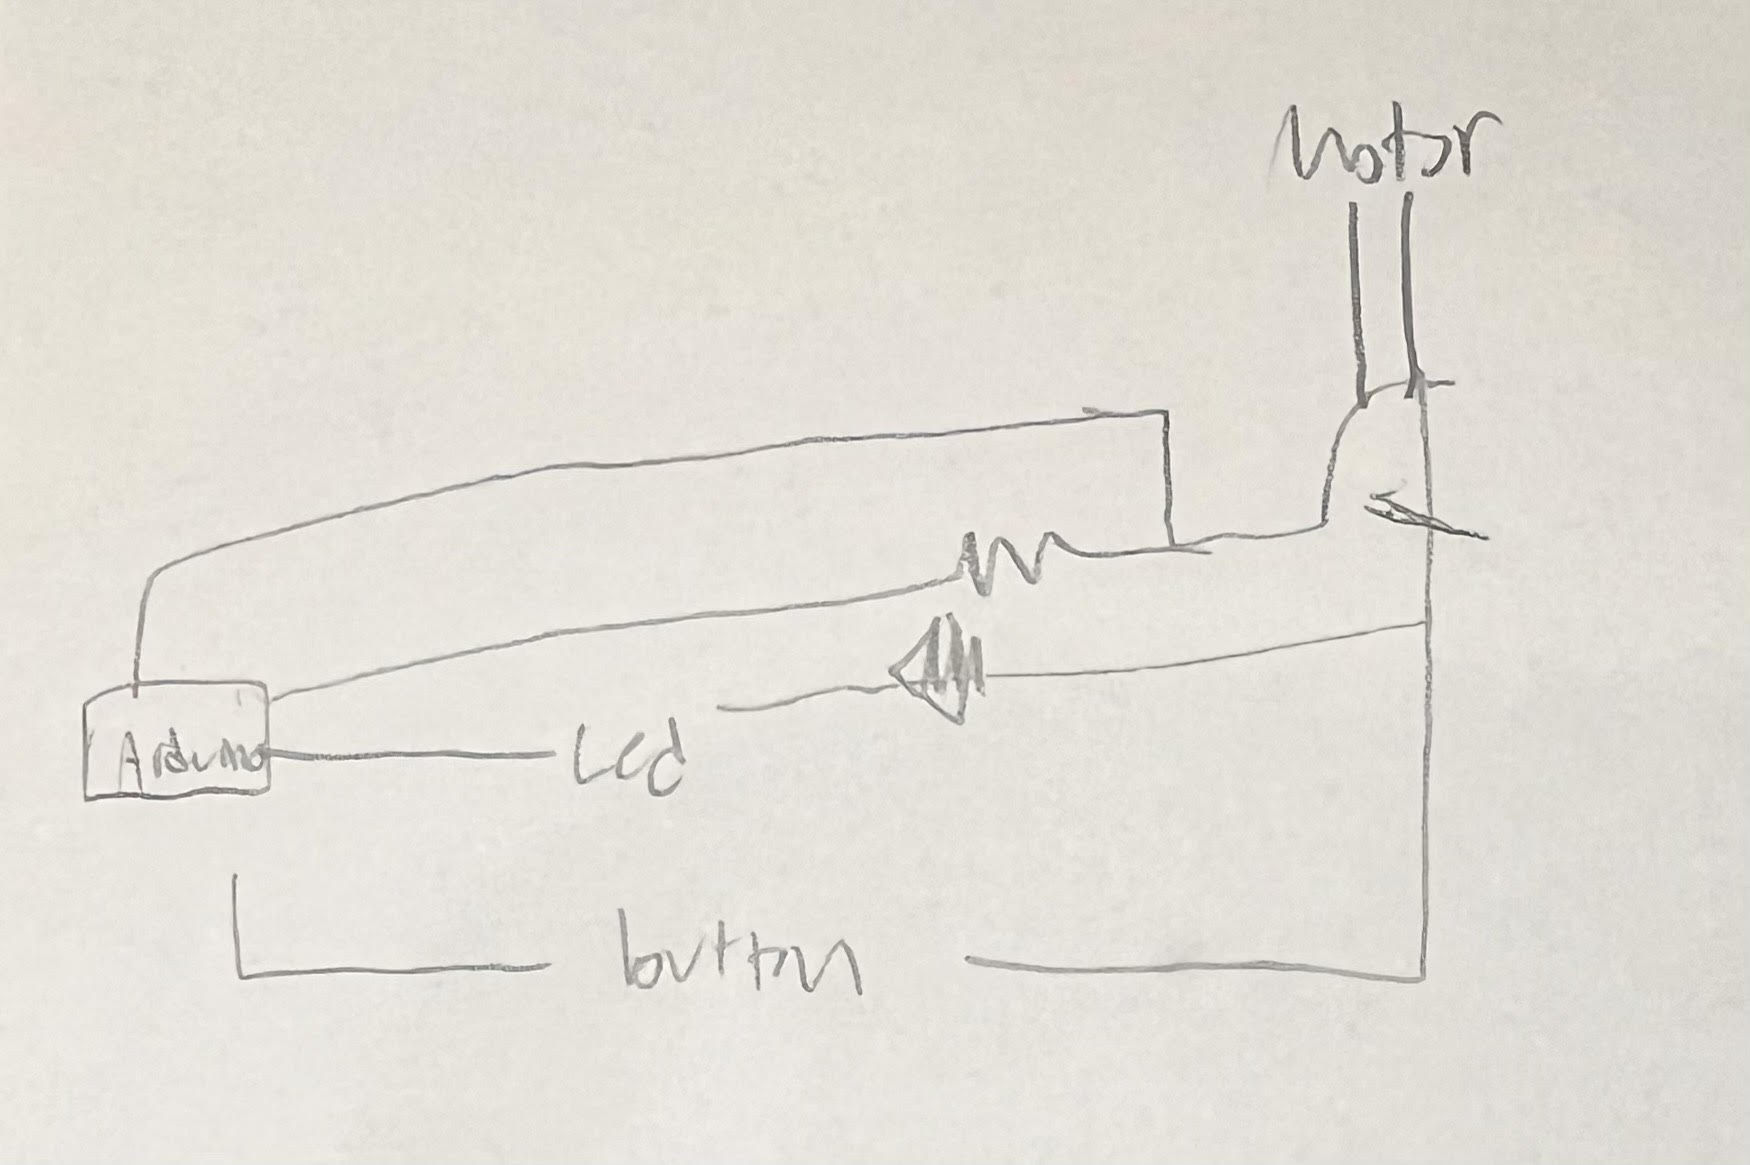 Motor
Arduino
Led
button